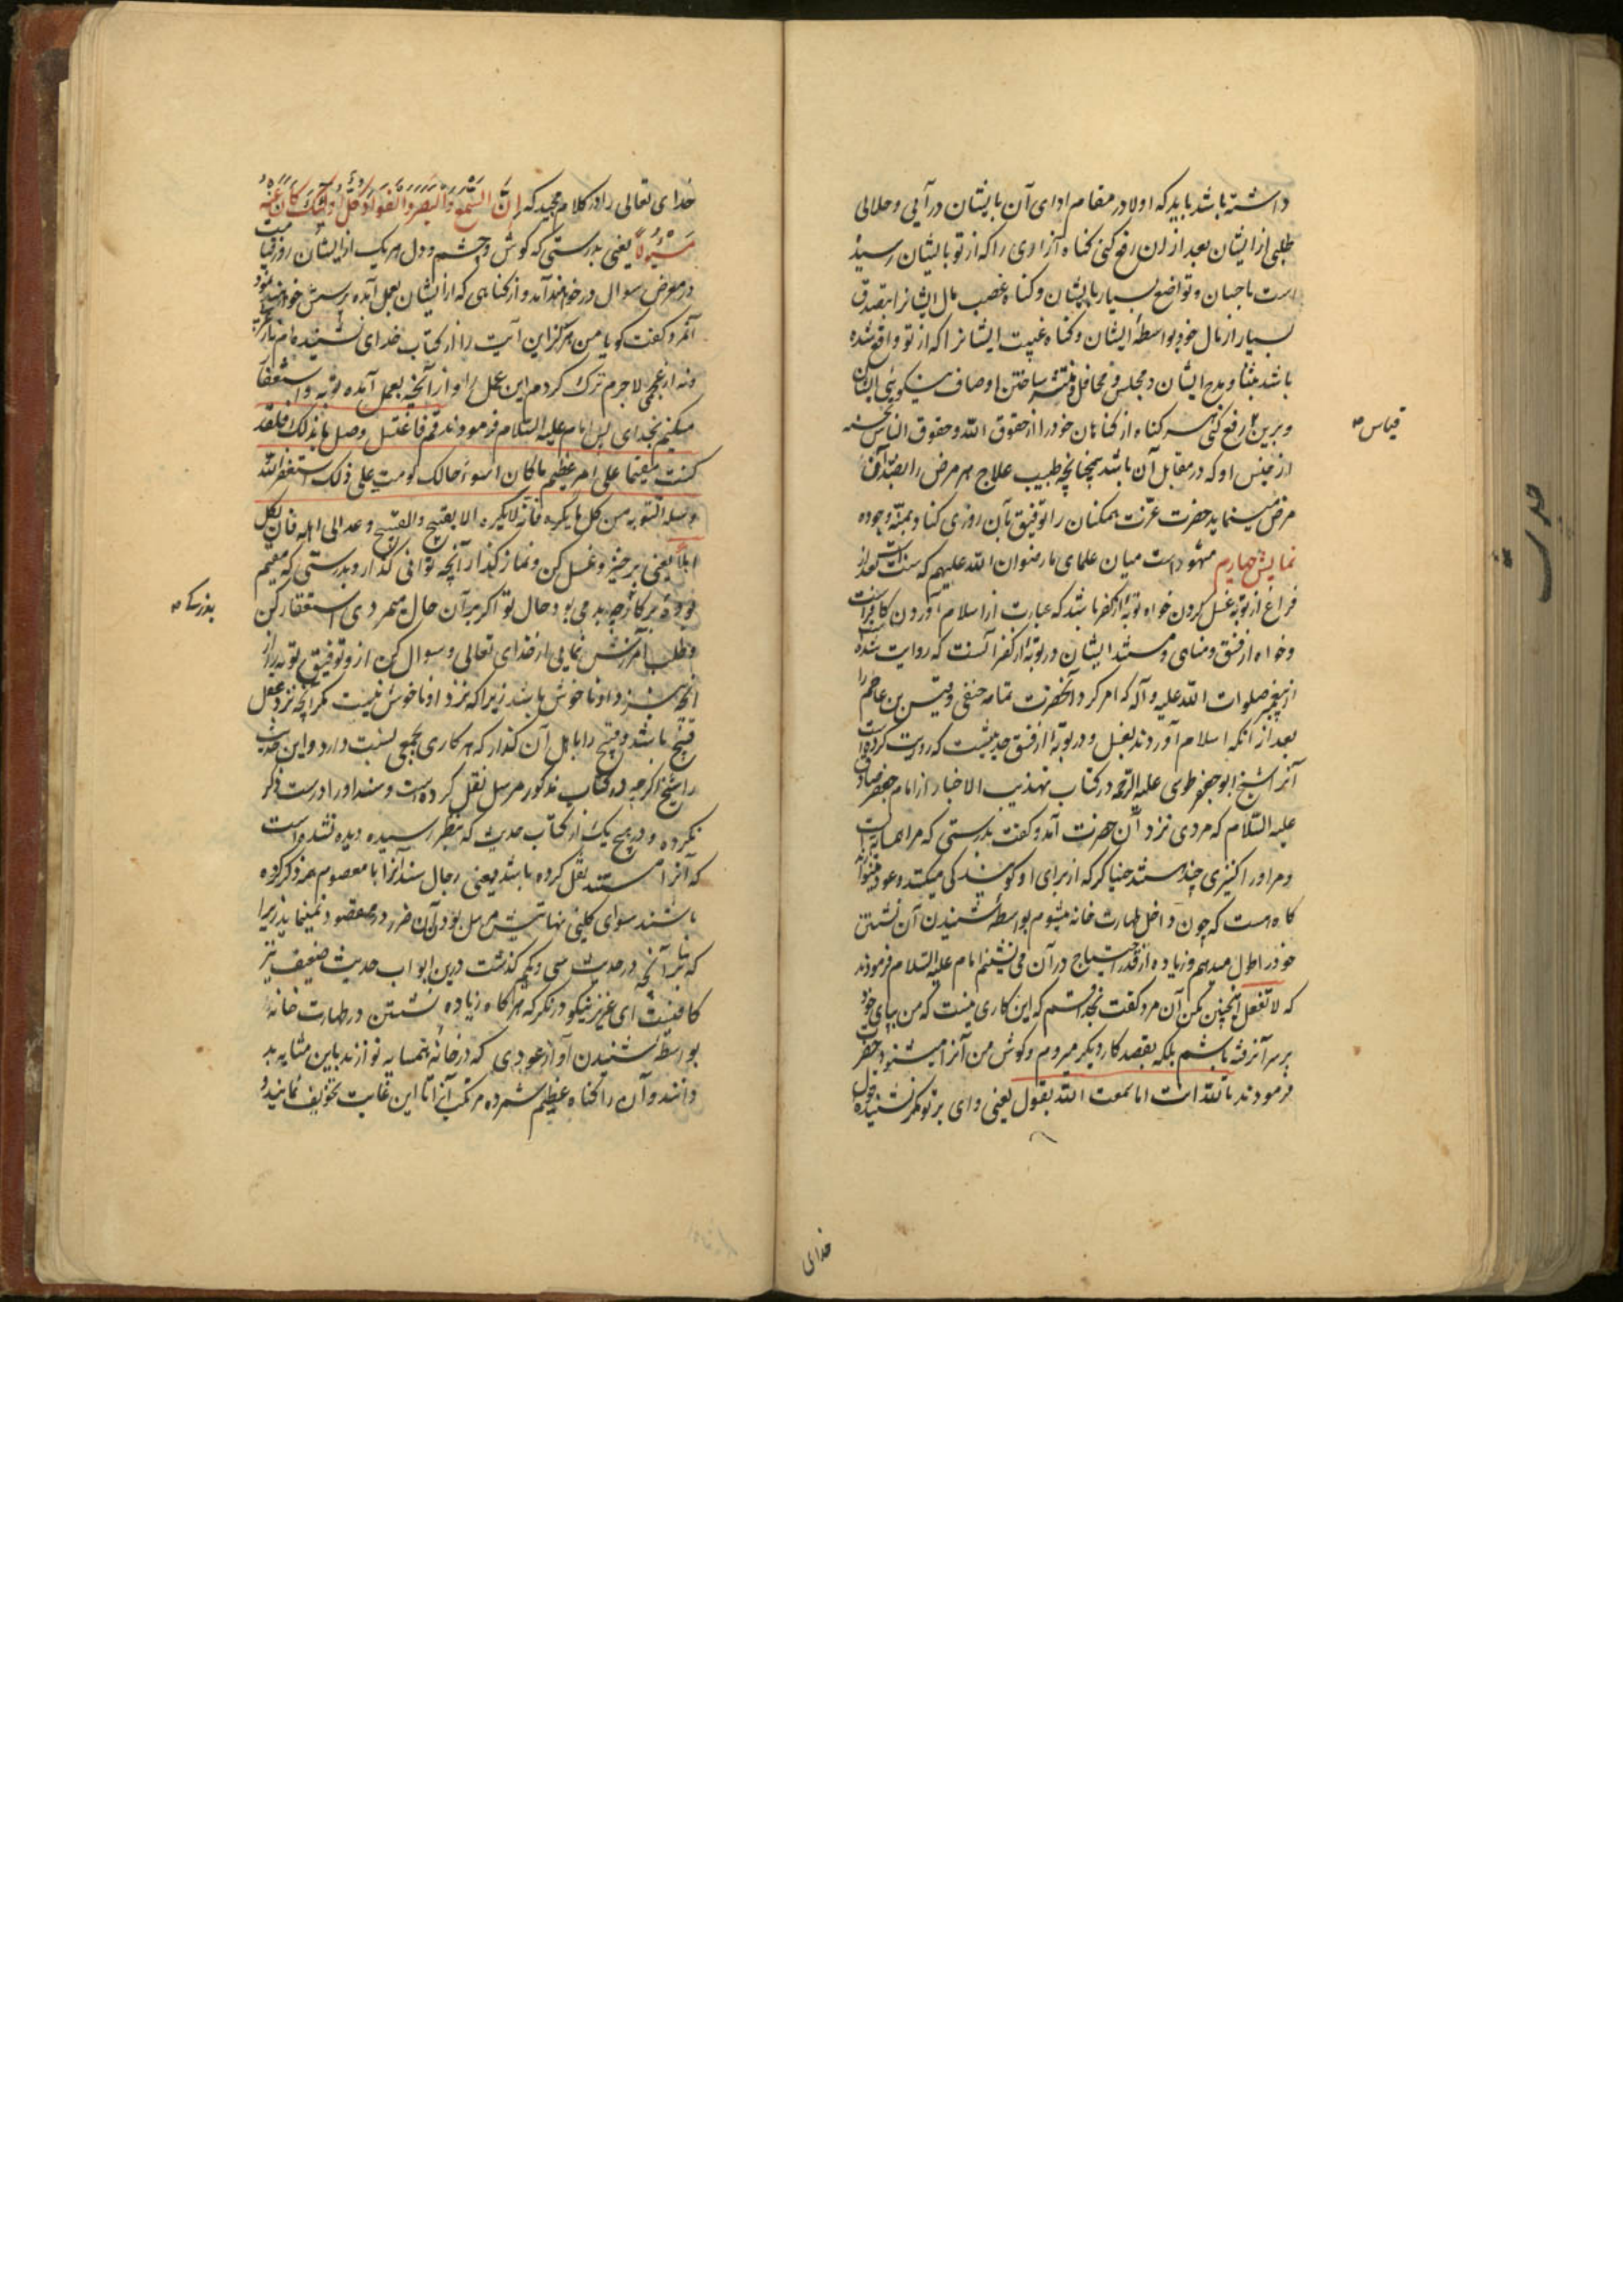 داشته باشد باید که اولا در مقام ادای آن بایشان در آیی و حلالی
طلبی از ایشان بعد از ان رفع کنی کناه آزاری را که از تو بایشان رسیده
است باحسان و تواضع بسیار بایشان و کناه غصب مال ایشانرا بتصدق
بسیار از مال خود بواسطهٔ ایشان و کناه غیبت ایشانرا که از تو واقع شده
باشد بثنا و مدح ایشان در مجلس و محافل و منتشر ساختن اوصاف نیکویی ایشان
و برین رفع کنی هر کناه از کناهان خود را از حقوق الله و حقوق الناس بحسنه
قیاس
از جنس او که در مقابل آن باشد همچنانچه طبیب علاج هر مرض را بضد آن
مرض مینماید حضرت عزت همکنان را توفیق بآن روزی کناد بمنه وجوده
نمایش چهارم مشهور است میان علمای ما رضوان الله علیهم که سنت است بعد از
فراغ از توبه غسل کردن خواه توبه از کفر باشد که عبارت از اسلام آوردن کافر است
و خواه از فسق و مناهی و مستند ایشان در توبه از کفر آنست که روایت شده است
از پیغمبر صلوات الله علیه و آله که امر کرد آنحضرت ثمامه حنفی و قیس بن عاصم را
بعد از آنکه اسلام آوردند بغسل و در توبه از فسق حدیثیست که روایت کرده است
آنرا شیخ ابو جعفر طوسی علیه الرحمه در کتاب تهذیب الاخبار از امام جعفر صادق
علیه السلام که مردی نزد آن حضرت آمد و کفت بدرستی که مرا همسایه ایست
و مر او را کنیزی چند هستند خنیاکر که از برای او کویندکی میکنند و عود مینوازند
کاه هست که چون داخل طهارت خانه میشوم بواسطهٔ شنیدن آن نشستن
خود را طول میدهم و زیاده از قدر احتیاج در آن می نشینم امام علیه السلام فرمودند
که لا تفعل اینچنین مکن آن مرد کفت بخدا قسم که این کاری نیست که من بپای خود
بر سر آن رفته باشم بلکه بقصد کار دیکر میروم و کوش من آنرا میشنود حضرت
فرمودند بالله انت اما سمعت الله یقول یعنی وای بر تو مکر نشنیده قول
خدای
خدای تعالی را در کلام مجید که اِنَّ السَّمْعَ وَالْبَصَرَ وَالْفُؤَادَ کُلُّ اُولٰئِکَ کَانَ عَنْهُ
مَسْئُولًا یعنی بدرستی که کوش و چشم و دل هر یک از ایشان روز قیامت
در معرض سوال در خواهند آمد و از کناهی که از ایشان بعمل آمده پرسش خواهند نمود
آنمرد کفت کویا من هرکز این آیت را از کتاب خدای نشنیده ام نه از عربی
و نه از عجمی لاجرم ترک کردم این عمل را و از آنچه بعمل آمده توبه و استغفار
میکنم بخدای پس امام علیه السلام فرمودند قم فاغتسل وصل ما بذلک فلقد
کنت مقیما علی امر عظیم ما کان اسوء حالک لو مت علی ذلک استغفر الله
وسله التوبه من کل ما یکره فانه لا یکره الا القبیح والقبیح دعه الی اهله فان لکل
اهلاً یعنی برخیز و غسل کن و نماز کذار آنچه توانی کذارد بدرستی که مقیم
بوده بر کار چه بد می بود حال تو اکر بر آن حال میمردی استغفار کن
و طلب آمرزش نمایی از خدای تعالی و سوال کن از و توفیق توبه را از
آنچه نزد او ناخوش باشد زیرا که نزد او ناخوش نیست مکر آنچه نزد عقل
قبیح باشد و قبیح را باهل آن کذار که هر کاری بجمعی نسبت دارد و این حدیث
را شیخ اکرچه در کتاب مذکور مرسل نقل کرده است و سند او را درست ذکر
نکرده و در هیچ یک از کتاب حدیث که بنظر رسیده دیده نشده است
که آنرا مستند نقل کرده باشد یعنی رجال سند آنرا با معصوم ع ذکر کرده
باشند سوای کلینی نهایتش مرسل بودن آن ضرر در مقصود نمینماید زیرا
که بنا بر آنچه در حدیث سی و یکم کذشت درین ابواب حدیث ضعیف نیز
کافیست ای عزیز نیکو در نکر که هر کاه زیاده نشستن در طهارت خانه
بواسطهٔ شنیدن آواز عودی که در خانهٔ همسایه نوازند باین مثابه بد
دانند و آن را کناه عظیم شمرده مرتکب آنرا تا این غایت تخویف نمایند و